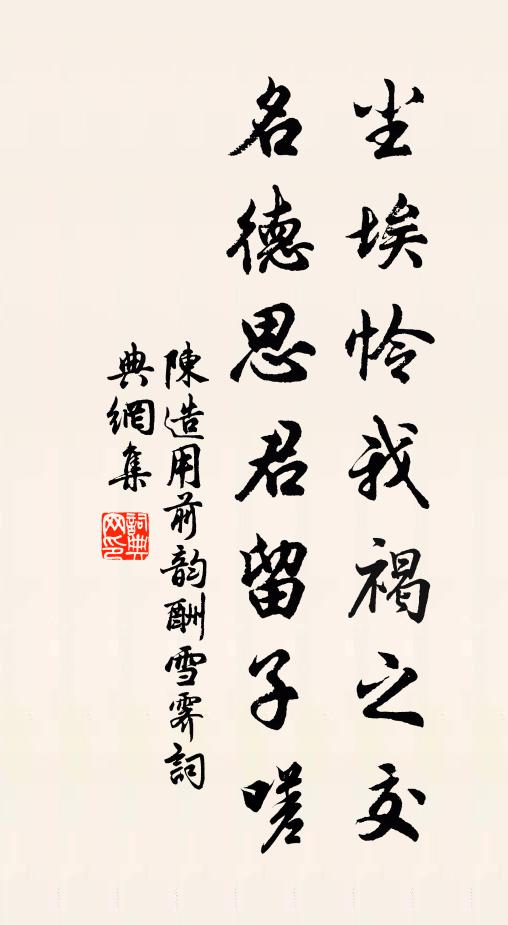 尘埃怜我褐之交
名德思君留子嗟
陳造用前韵酬雪霁詞
典網集
詞典网印